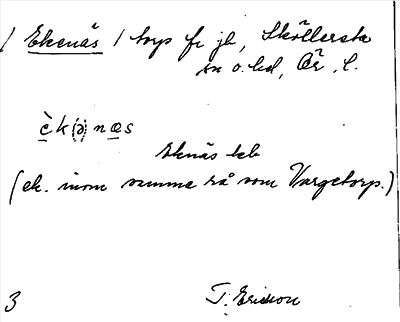 / Ekenäs / torp fr jb, Sköllersta
sn o. hd, Ör. l.
èk(ə)næs
Eknäs kb
(ek. inom samma rå som Vargetorp.)
3 T. Ericson